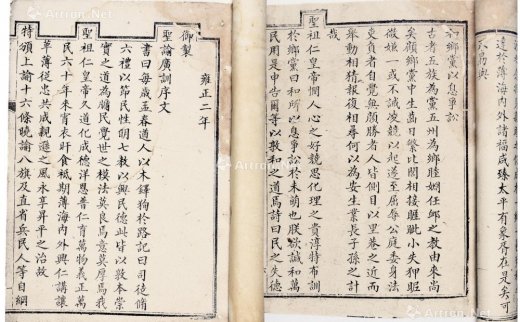 於薄海內外諸福咸臻太平有象胥在是矣可
和鄉黨以息爭訟
古者五族為黨五州為鄉睦婣任卹之教由來尚
矣顧鄉黨中生齒日繁比閭相接睚眦小失狎昵
微嫌一或不誡凌競以起遂至屈辱公庭委身法
吏負者自覺無顏勝者人皆側目以里巷之近而
舉動相猜報復相尋何以為安生業長子孫之計
哉
聖祖仁皇帝憫人心之好競思化理之貴淳特布訓
於鄉黨曰和所以息爭訟於未萌也朕欲諴和萬
民用是申告爾等以敦和之道焉詩曰民之失德
雍正二年
御製
聖諭廣訓序文
書曰每歲孟春遒人以木鐸狥於路記曰司徒脩
六禮以節民性明七教以興民德此皆以敦本崇
實之道為牖民覺世之模法莫良焉意莫厚焉我
聖祖仁皇帝久道化成德洋恩普仁育萬物義正萬
民六十年來宵衣旰食祗期薄海內外興仁講讓
革薄從忠共成親遜之風永享昇平之治故
特頒上諭十六條曉諭八旗及直省兵民人等自綱